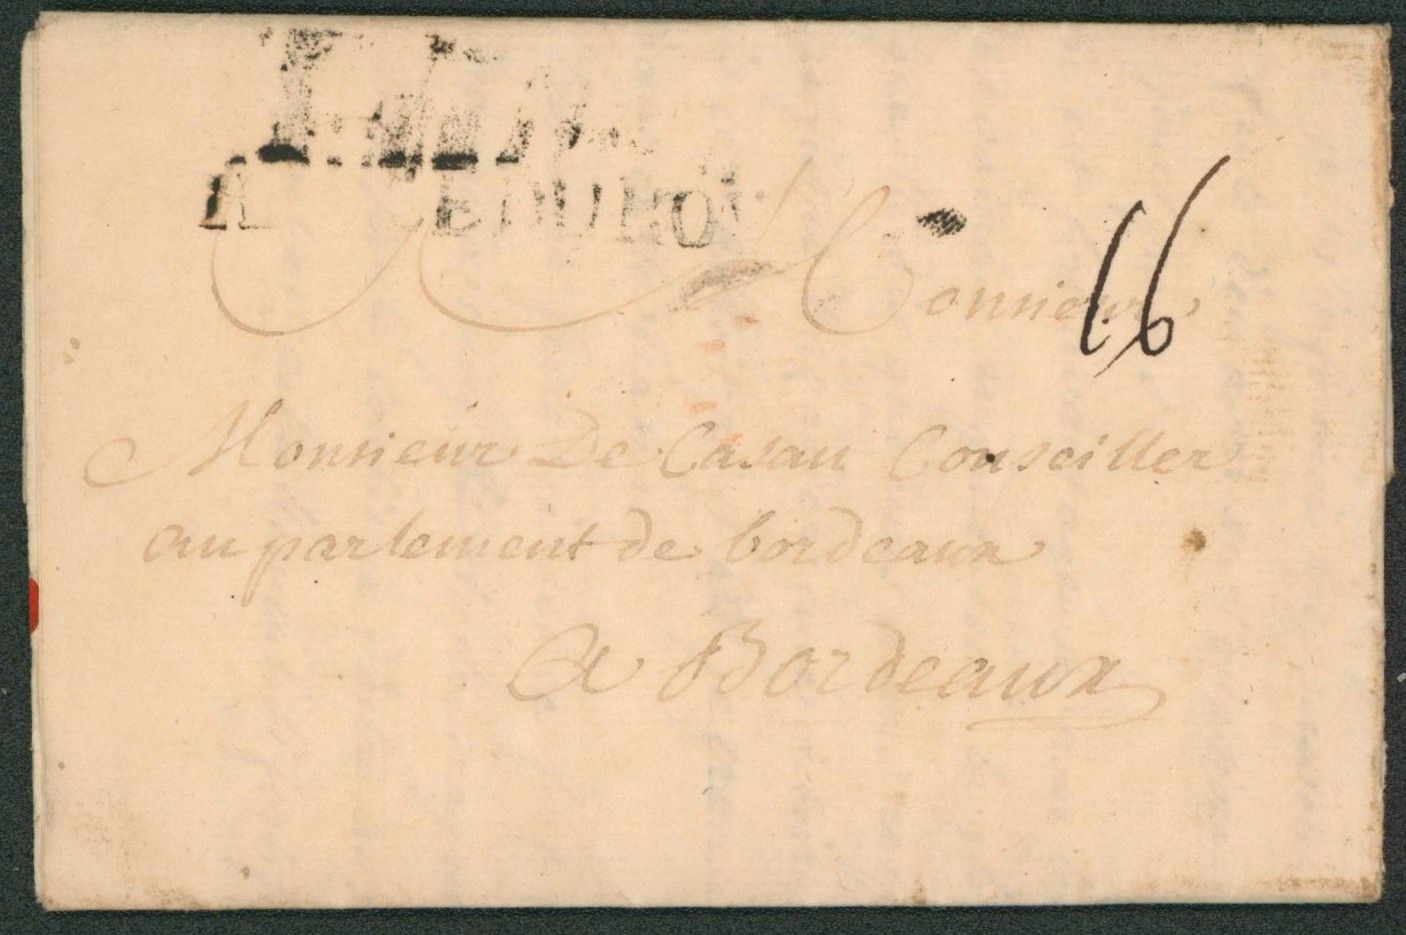 16
A Monsieur
Monsieur De Casau Conseiller
au parlement de bordeaux
A Bordeaux